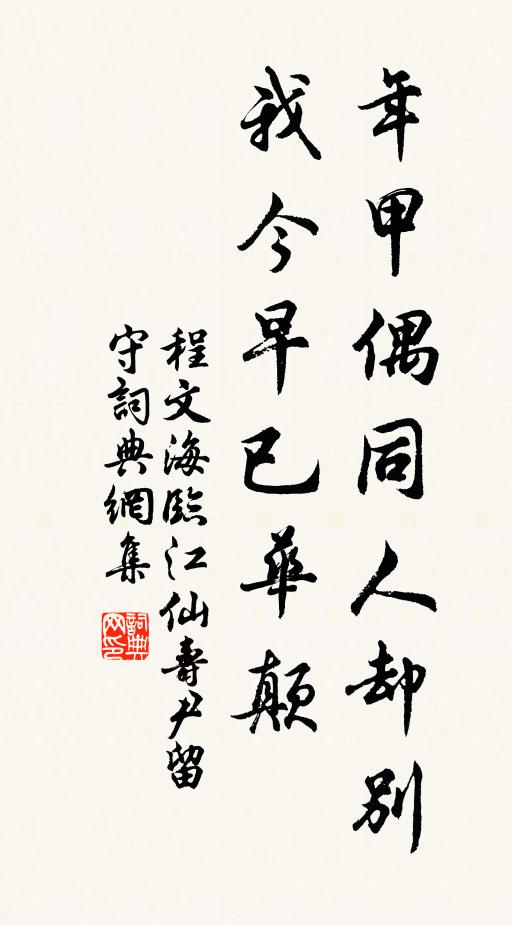 年甲偶同人却別
我今早已華顛
程文海臨江仙壽尹留
守詞典網集
詞典
网印